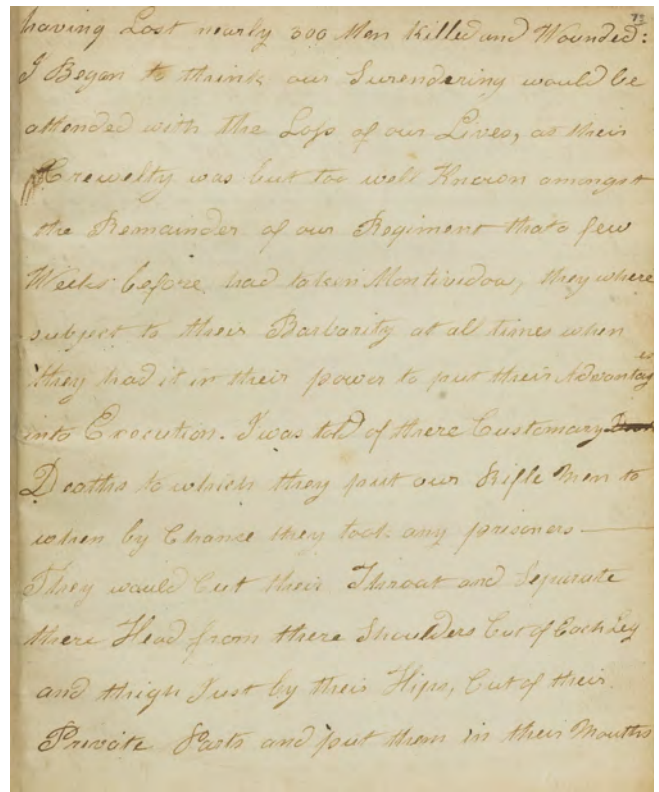 73
having Lost nearly 300 Men Killed and Wounded:
I Began to think our Surendering would be
attended with the Loss of our Lives, as their
Crewelty was but too well Known amongst
the Remainder of our Regiment that a few
Weeks before had taken Montividoa, they where
subject to their Barbarity at al times when
they had it in their power to put their Advantages
into Execution. I was told of there Customary
Deaths to which they put our Rifle Men to
when by Chance they took any prisoners
They would Cut their Throat and Separate
there Head from there Shoulders Cut of Each Leg
and thigh Just by their Hips, Cut of their
Private Parts and put them in their Mouths